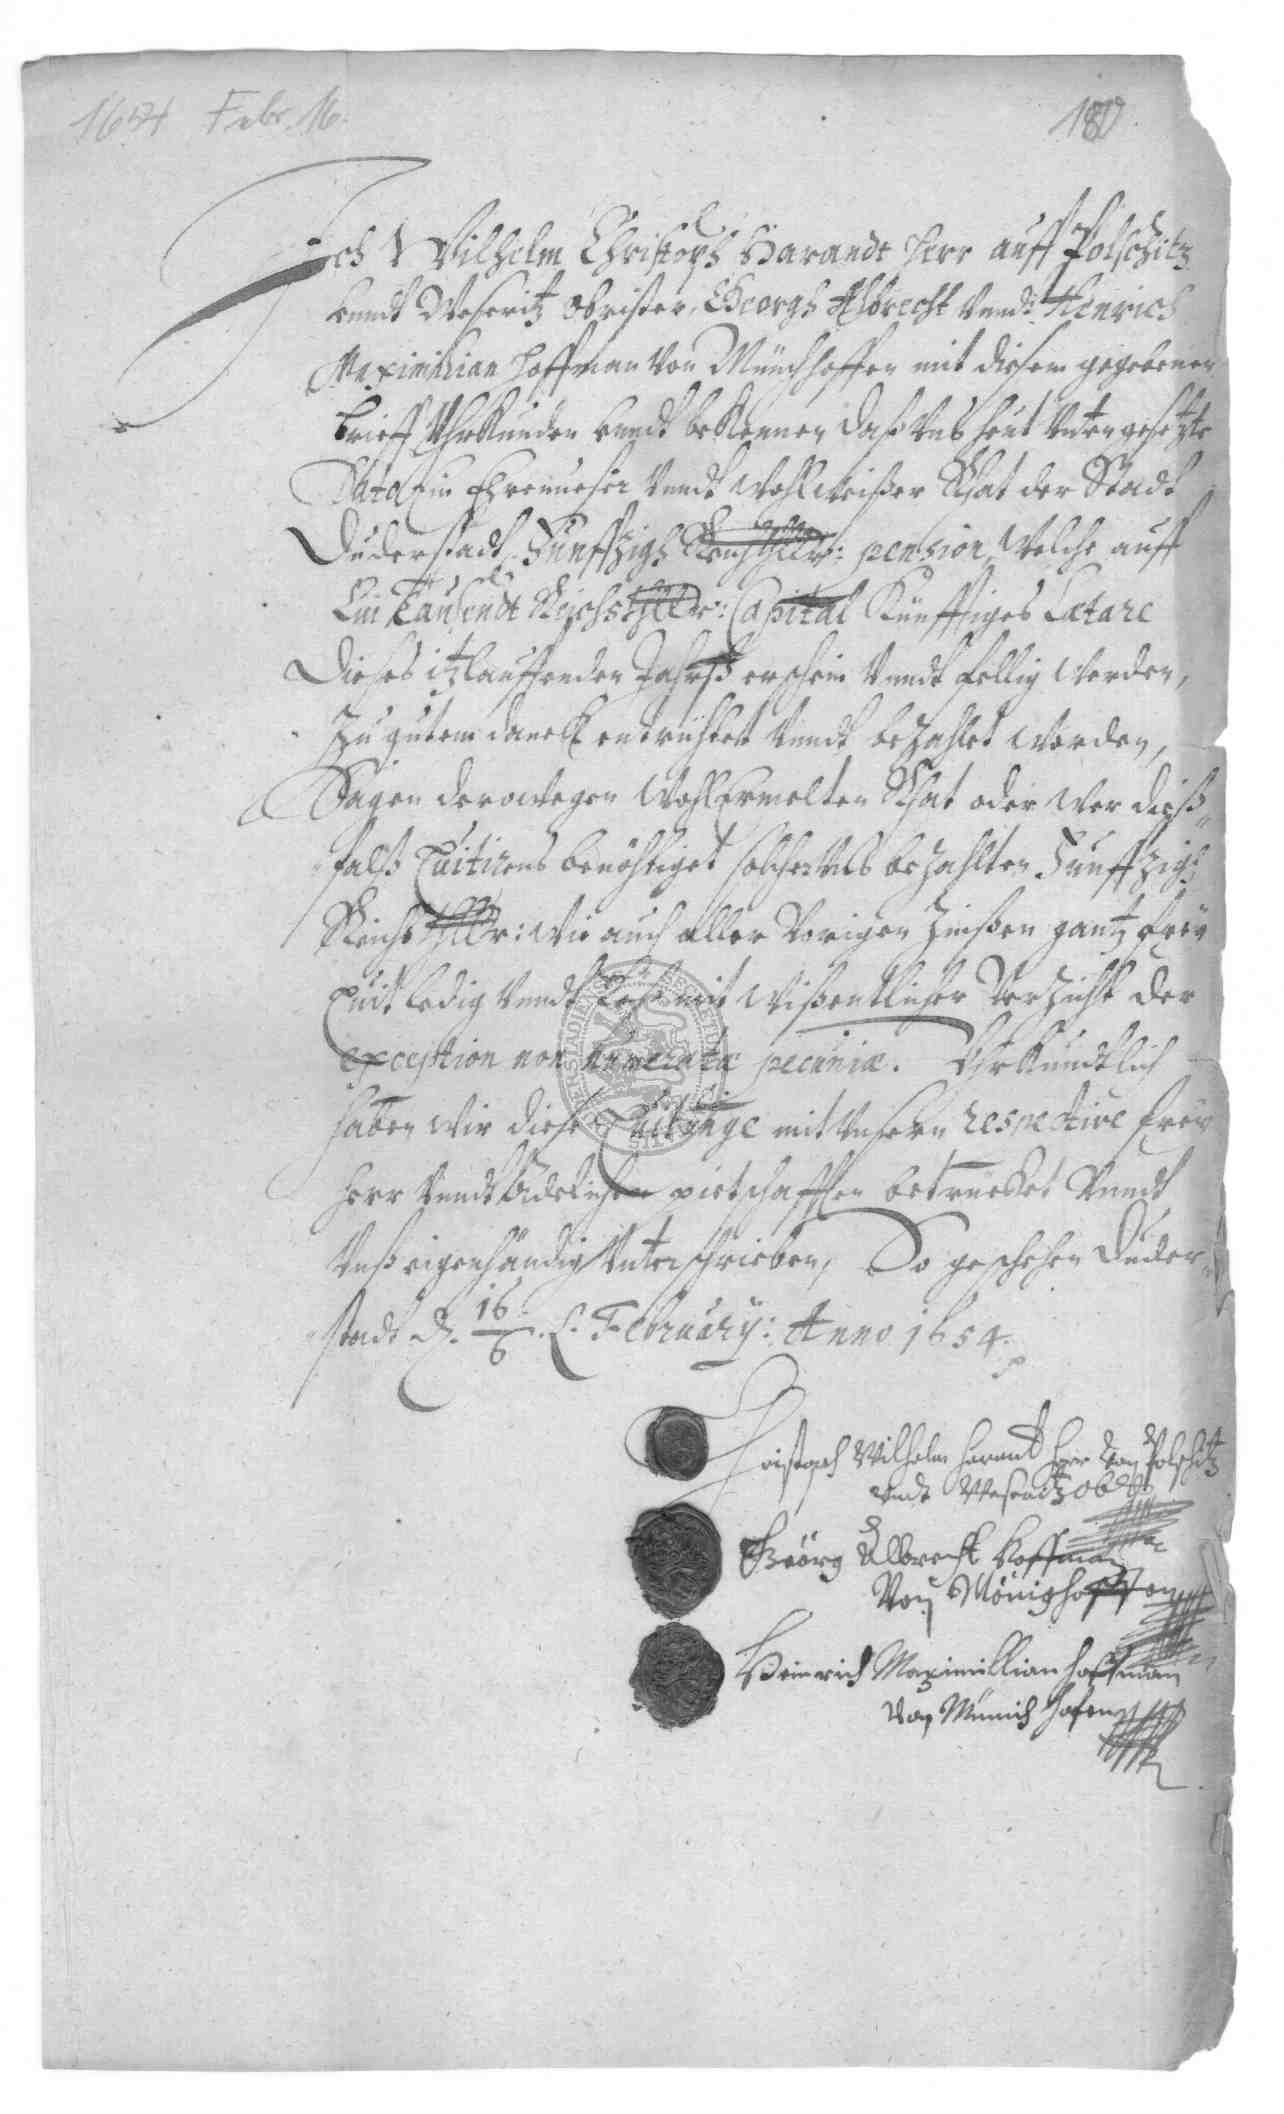 1654 Febr. 16.
180
Ich Wilhelm Christoph Harandt Herr auff Polschitz
vundt Weseritz Obrister, Georgh Albrecht vnd Henrich
Maximilian Hoffman von Münchhoffen mit diesem gegebenen
brieff Vhrkunden vundt bekennen, daß vns heut vntengesetzte
Dato ein Ehrenvester vundt wohlweißer Rhat der Stadt
Duderstadt, Funffzigh Reichsthlr: pension, welche auff
Ein tausendt Reichsthlr: Capital künfftiges Lætare
dieses itzlauffenden Jahrß erschein vundt fellig werden,
zu gutem danck entrichtet vundt bezahlet worden,
Sagen derowegen wohlermelten Rhat oder wer dieß-
falß Quitirens benöhtiget solcher vns bezahlten Funffzigh
Reichsthlr: wie auch aller vorigen Zinßen gantz frey
quit ledig vundt loß mit wißentlicher verzicht der
exception non numeratæ pecuniæ. Vhrkundtlich
haben wir diese Quitunge mit vnsern respective frey
herr vundt Adelichen pietschafften betrucket vundt
vnß eigenhändig vnterschrieben, So geschehen Duder-
stadt d. 16/6. February: Anno 1654.
Christoph Wilhelm Harant Herr von Polschitz
vndt Weseritz Ob
Geörg Albrecht Hoffman
von Mönighoffen
Heinrich Maximillian Hoffman
von Münich hofen